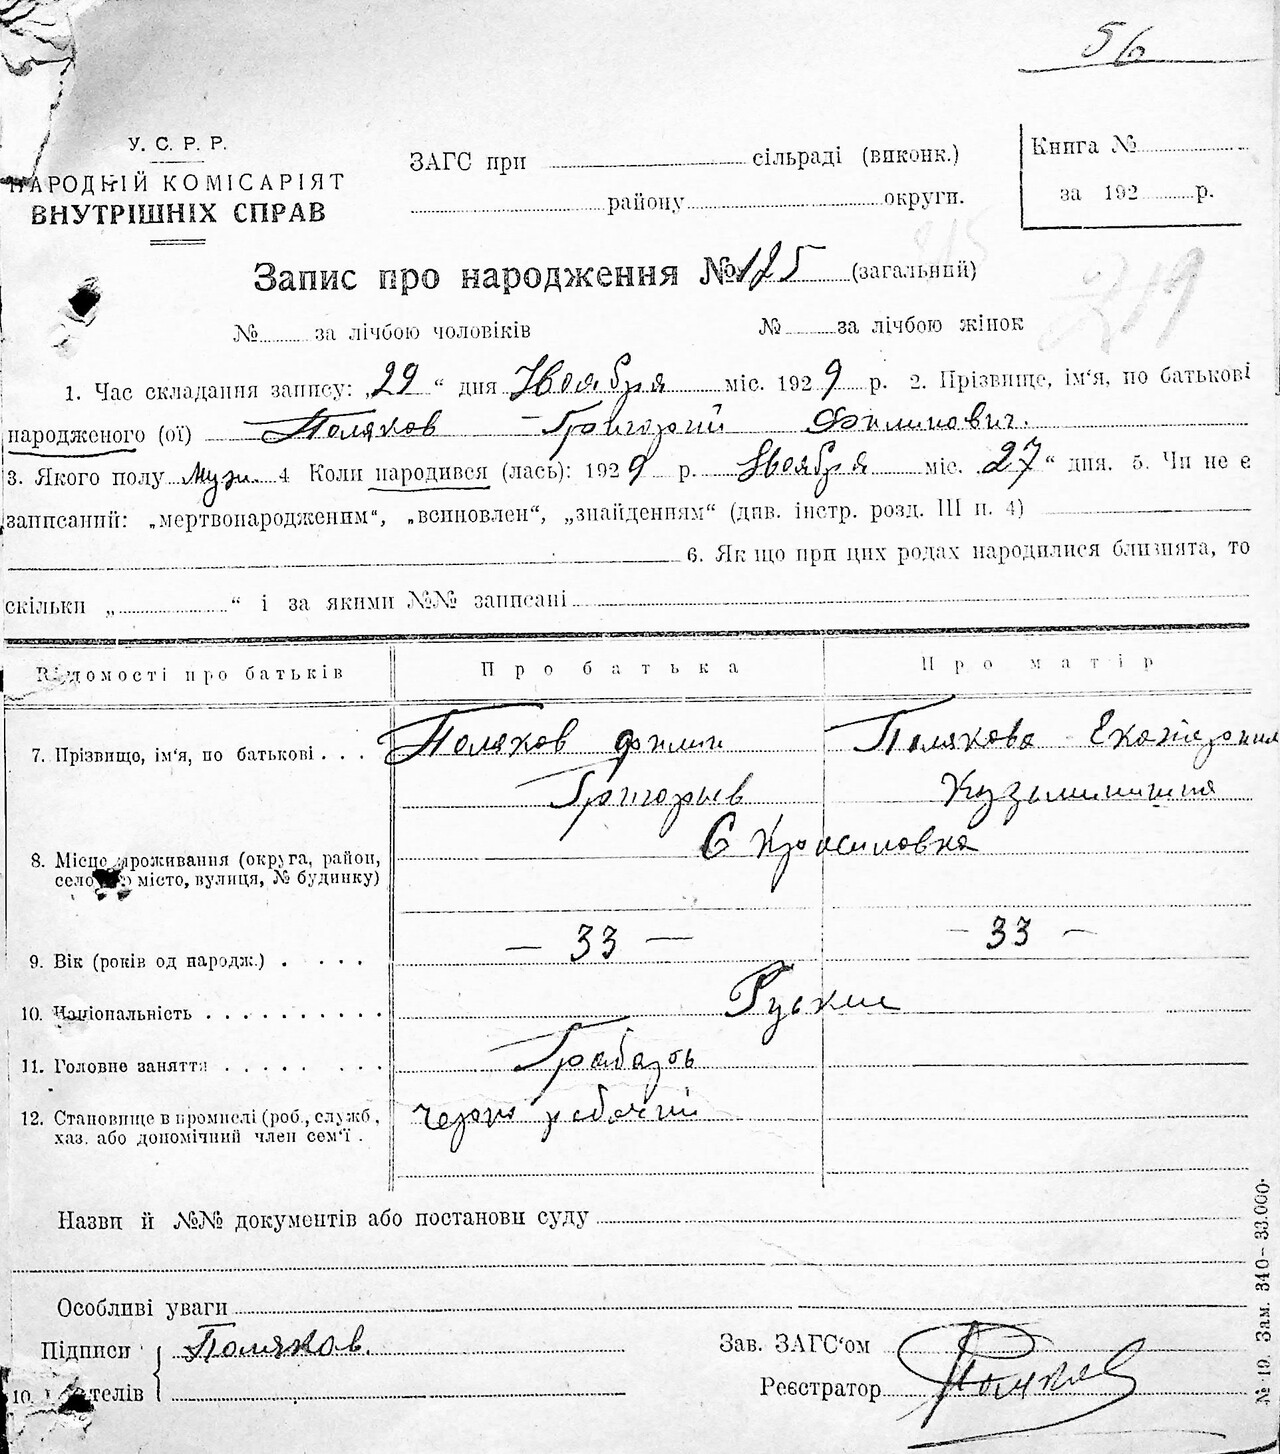 56
У. С. Р. Р.
НАРОДНІЙ КОМІСАРІЯТ
ВНУТРІШНІХ СПРАВ
ЗАГС при сільраді (виконк.)
району округи.
Книга №
за 192 р.
Запис про народження № 125 (загальний)
319
№ за лічбою чоловіків № за лічбою жінок
1. Час складання запису: „29“ дня Ноября міс. 1929 р. 2. Прізвище, ім'я, по батькові
народженого (ої) Поляков - Григорий Филипович.
3. Якого полу муж. 4 Коли народився (лась): 1929 р. Ноября міс. 27“ дня. 5. Чи не є
записаний: „мертвонародженим“, „всиновлен“, „знайденням“ (див. інстр. розд. III п. 4)
6. Якщо при цих родах народилися близнята, то
скільки „ “ і за якими №№ записані
Відомості про батьків Про батька Про матір
7. Прізвище, ім'я, по батькові . . . Поляхов Филип Полякова Екатерина
Григорьев Кузьминишна
8. Місце проживання (округа, район, С Красиловка
село або місто, вулиця, № будинку)
9. Вік (років од народж.) . . . . . — 33 — - 33 -
10. Національність . . . . . . . . . . Руские
11. Головне заняття . . . . . . . . Грабазь
12. Становище в промислі (роб., служб., черно рабочий
хаз. або допомічний член сем'ї .
Назви й №№ документів або постанови суду
Особливі уваги
Підписи Поляков.
Зав. ЗАГС'ом
Реєстратор Поляков
№ 19. Зам. 340—33.000.